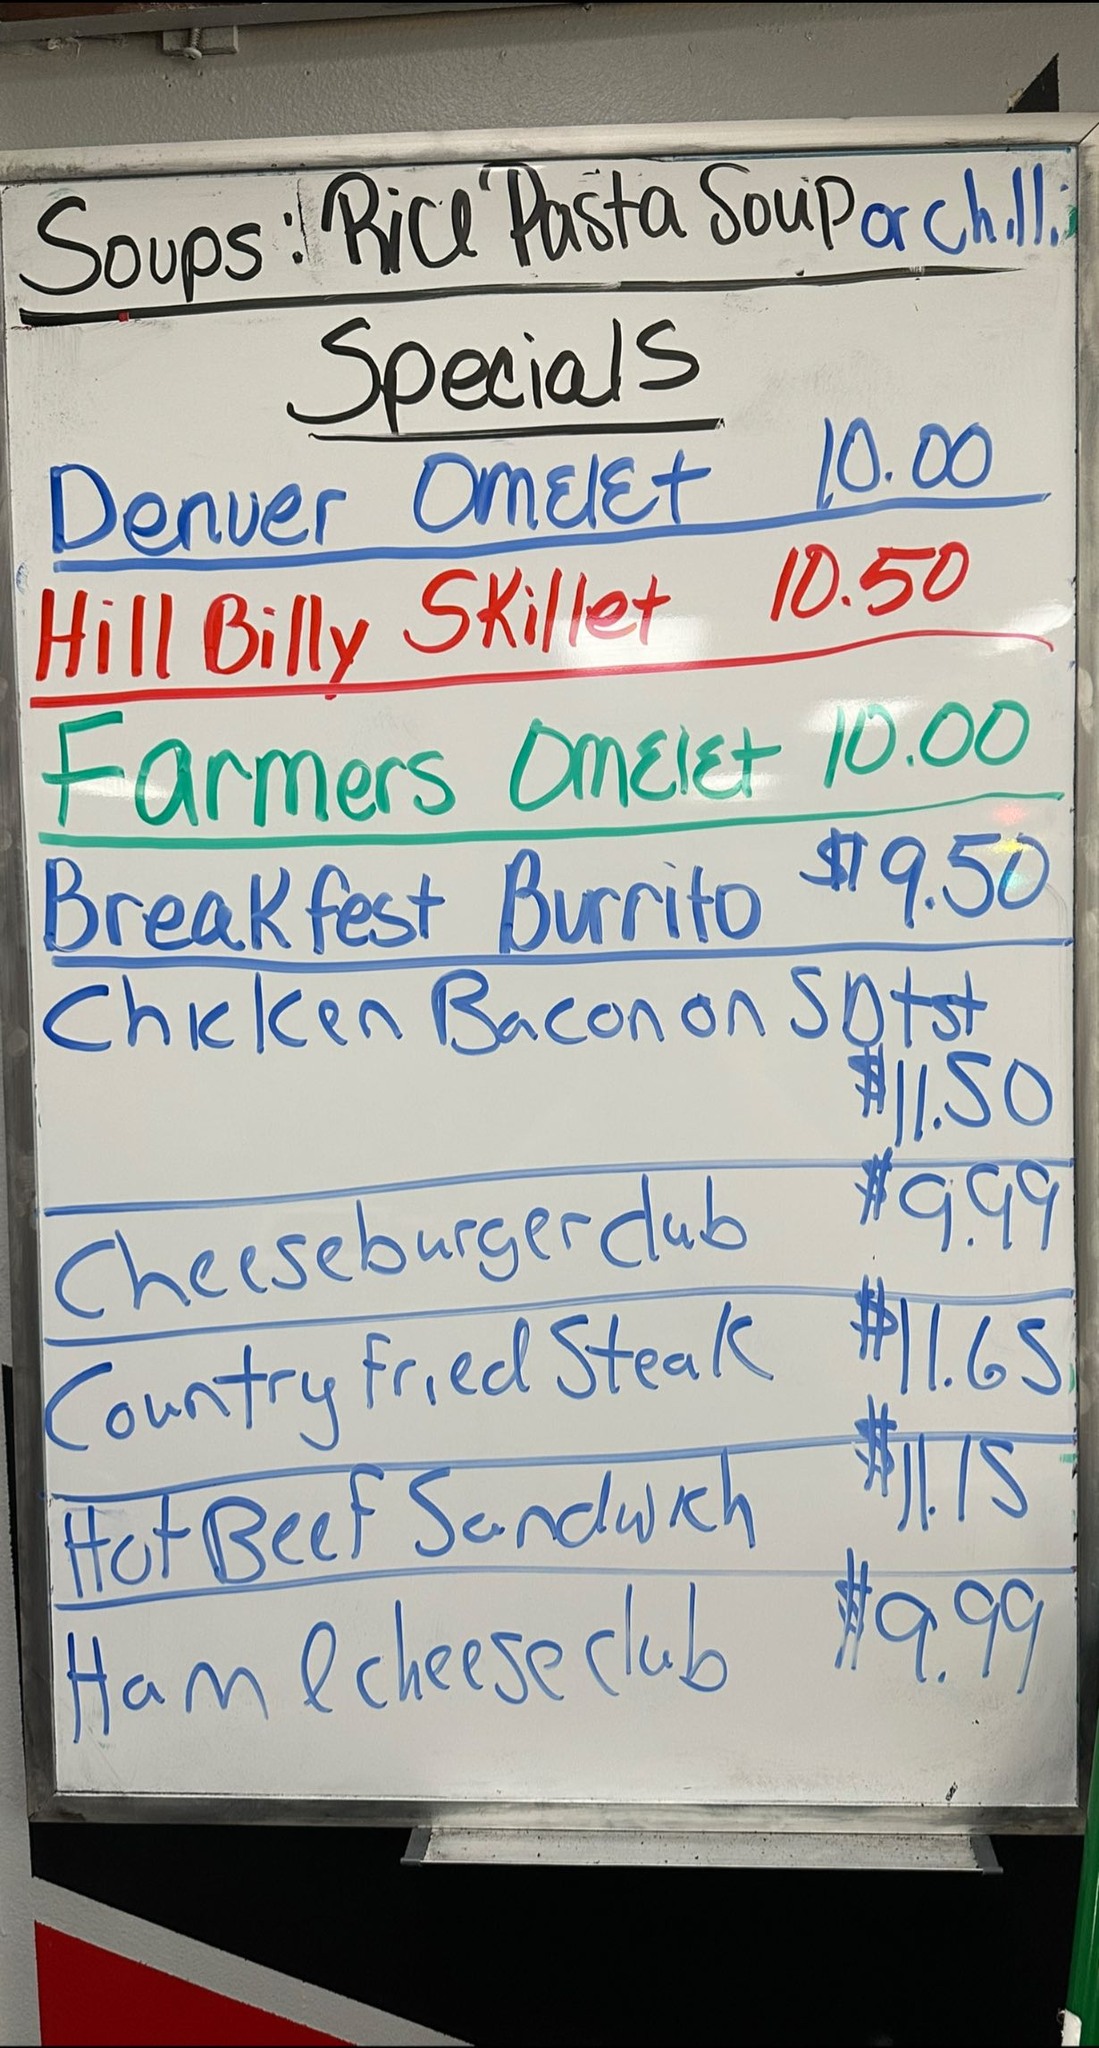 Soups: Rice Pasta Soup or chili
Specials
Denver Omelet 10.00
Hill Billy Skillet 10.50
Farmers Omelet 10.00
Breakfest Burrito $9.50
Chicken Bacon on SD tst
$11.50
Cheeseburger club $9.99
Country Fried Steak $11.65
Hot Beef Sandwich $11.15
Ham & cheese club $9.99